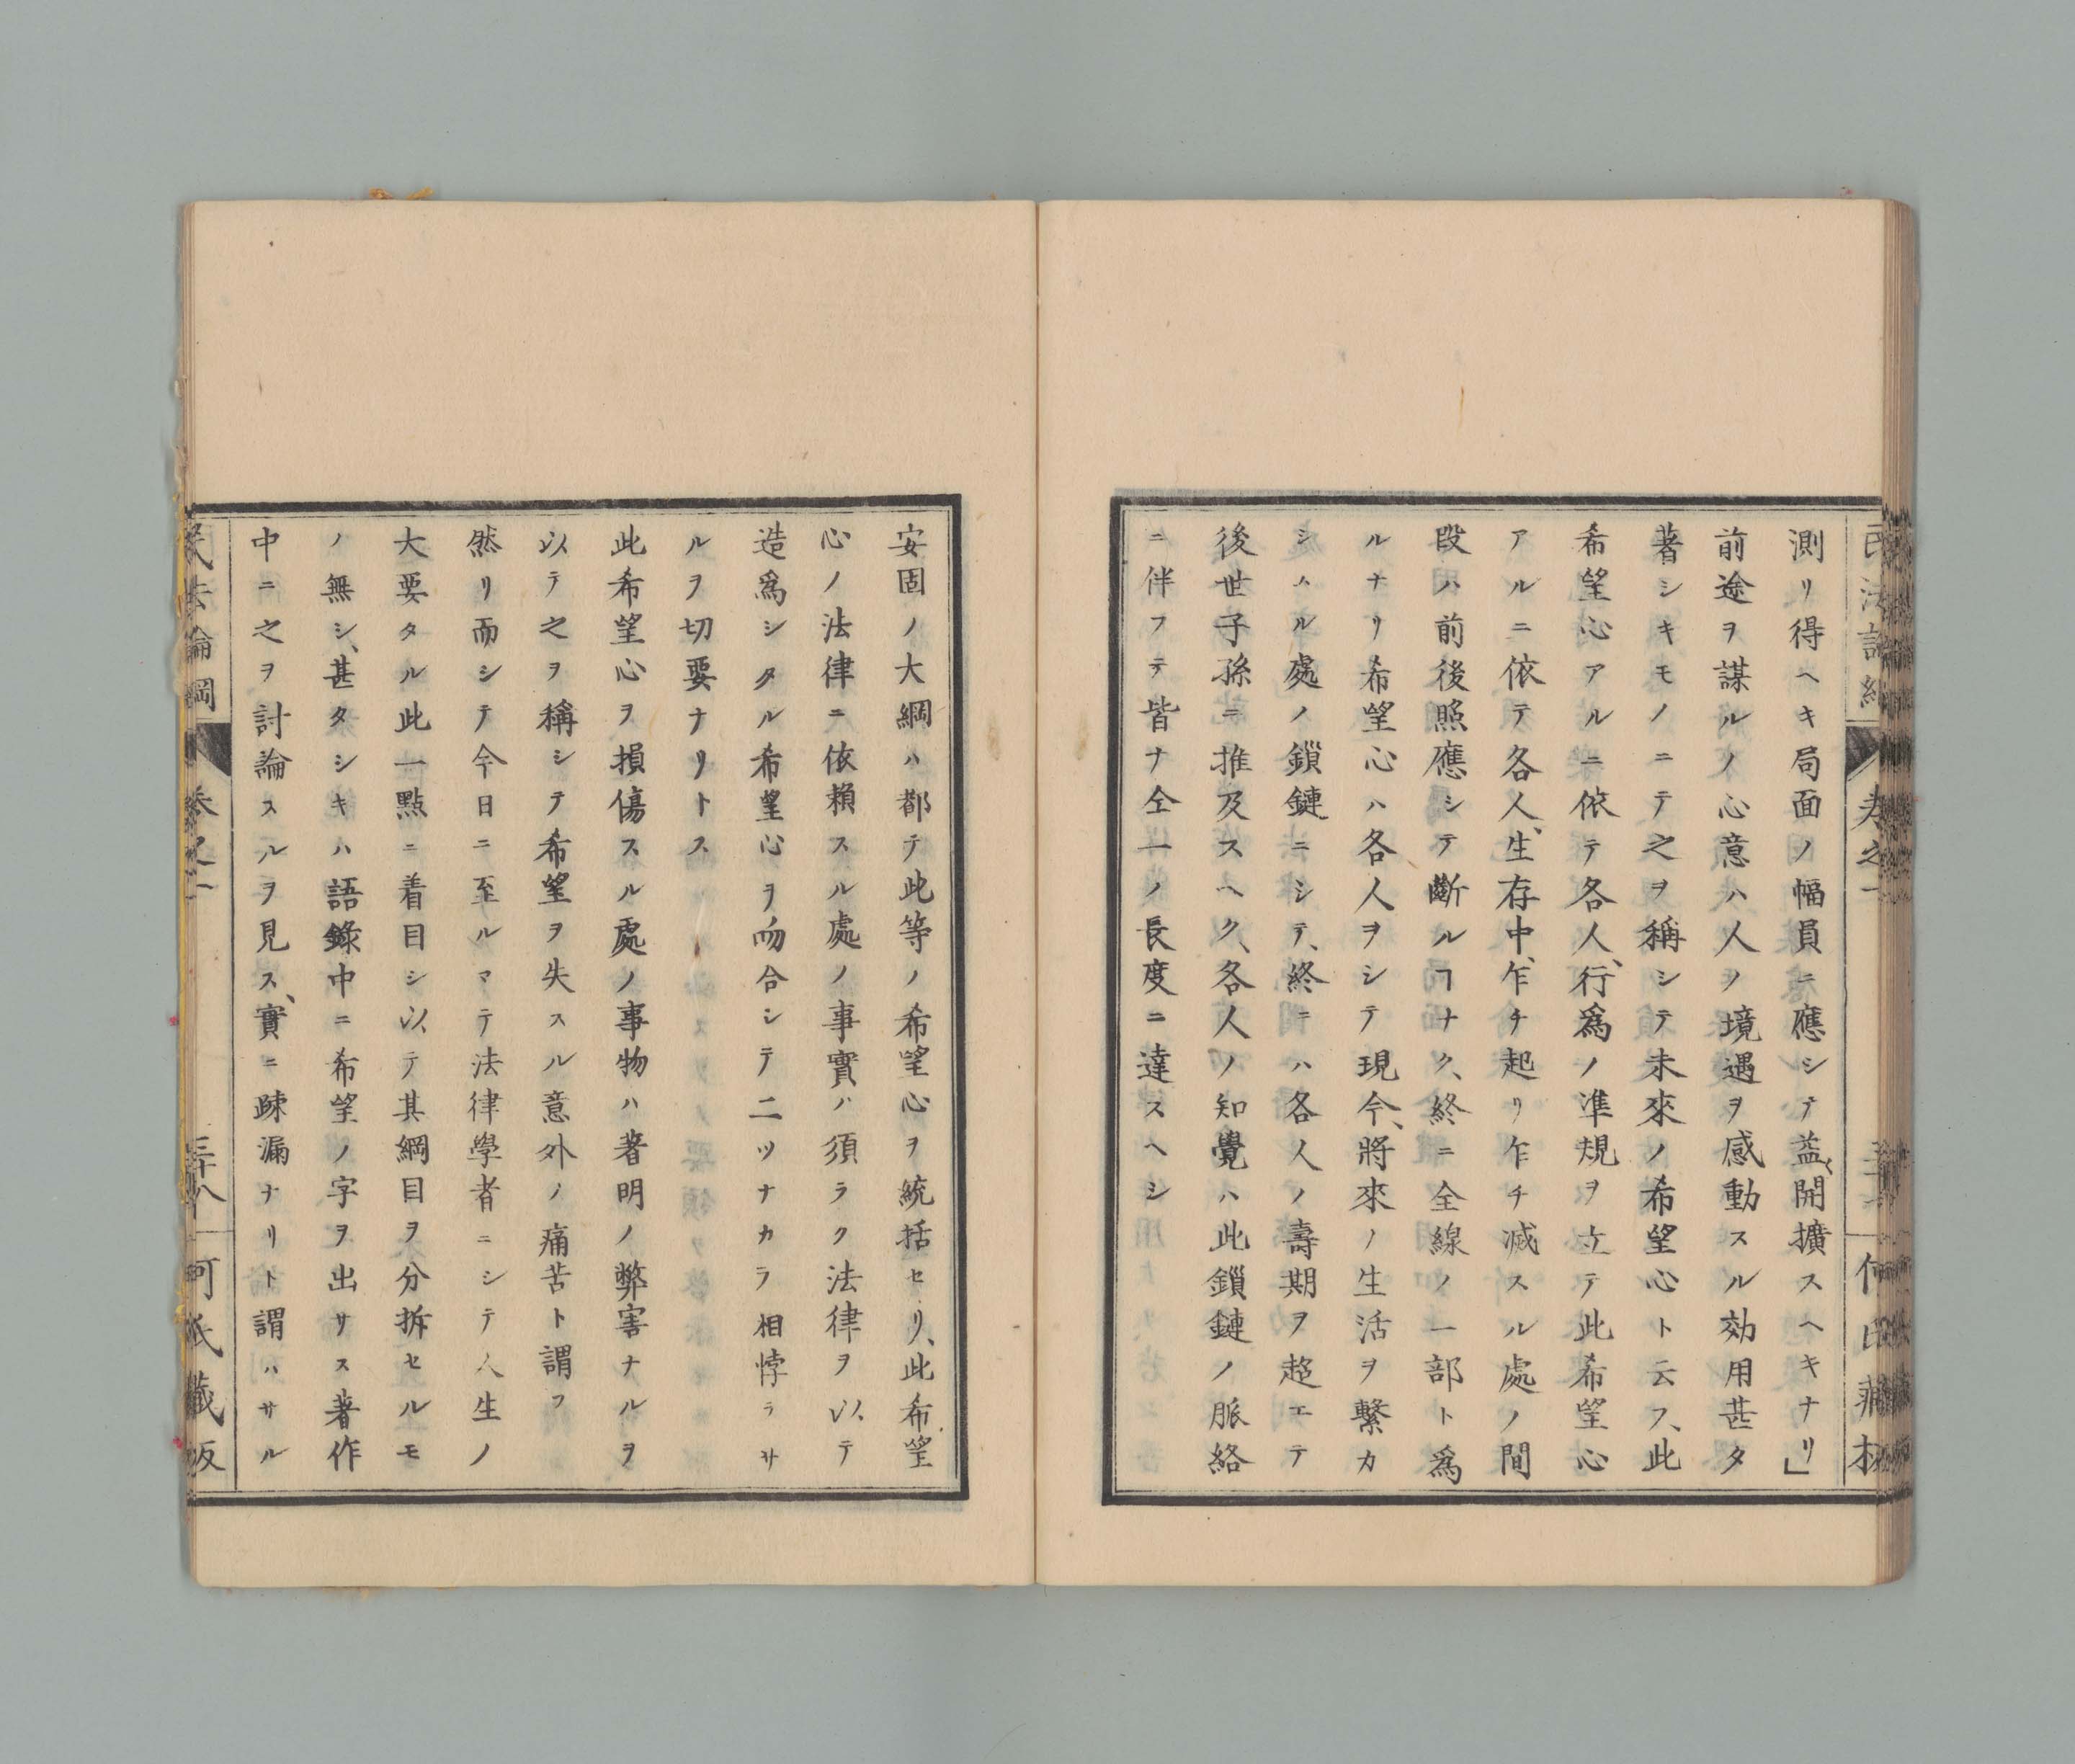 測リ得ヘキ局面ノ幅員ニ應シテ益〻開擴スヘキナリ」
前途ヲ謀ルノ心意ハ人ノ境遇ヲ感動スル効用甚タ
著シキモノニテ之ヲ稱シテ未來ノ希望心ト云フ、此
希望心アルニ依テ各人、行爲ノ準規ヲ立テ此希望心
アルニ依テ各人、生存中、乍チ起リ乍チ減スル處ノ間
段ハ前後照應シテ斷ルヿナク、終ニ全線ノ一部ト爲
ルナリ希望心ハ各人ヲシテ現今、將來ノ生活ヲ繫カ
シムル處ノ鎖鏈ニシテ、終ニハ各人ノ壽期ヲ超エテ
後世子孫ニ推及スヘク、各人ノ知覺ハ此鎖鏈ノ脈絡
ニ伴フテ皆ナ仝一ノ長度ニ達スヘシ
安固ノ大綱ハ都テ此等ノ希望心ヲ統括セリ、此希望
心ノ法律ニ依賴スル處ノ事實ハ須ラク法律ヲ以テ
造爲シタル希望心ヲ脗合シテ二ツナカラ相悖ラサ
ルヲ切要ナリトス
此希望心ヲ損傷スル處ノ事物ハ著明ノ弊害ナルヲ
以テ之ヲ稱シテ希望ヲ失スル意外ノ痛苦ト謂フ
然リ而シテ今日ニ至ルマテ法律學者ニシテ人生ノ
大要タル此一點ニ着目シ以テ其綱目ヲ分拆セルモ
ノ無シ、甚タシキハ語錄中ニ希望ノ字ヲ出サス著作
中ニ之ヲ討論スルヲ見ス、實ニ疎漏ナリト謂ハサル
民法論綱 卷之一 三十八 何氏藏板